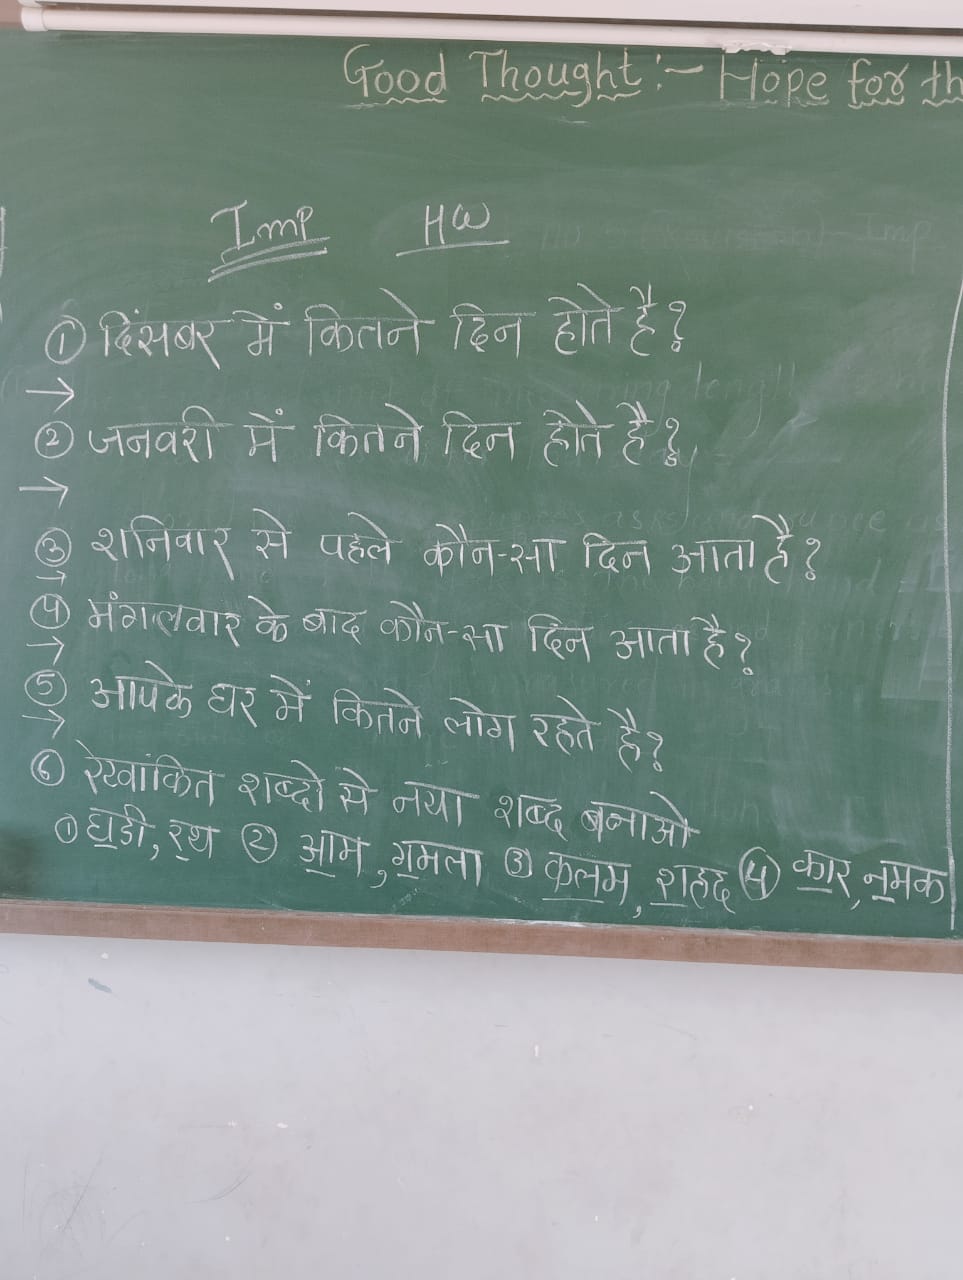 Good Thought :- Hope for th
Imp HW
① दिंसबर में कितने दिन होते है?
→
② जनवरी में कितने दिन होते है?
→
③ शनिवार से पहले कौन-सा दिन आता है?
→
④ मंगलवार के बाद कौन-सा दिन आता है?
→
⑤ आपके घर में कितने लोग रहते है?
→
⑥ रेखांकित शब्दो से नया शब्द बनाओ
① घडी, रथ ② आम, गमला ③ कलम, शहद ④ कार, नमक